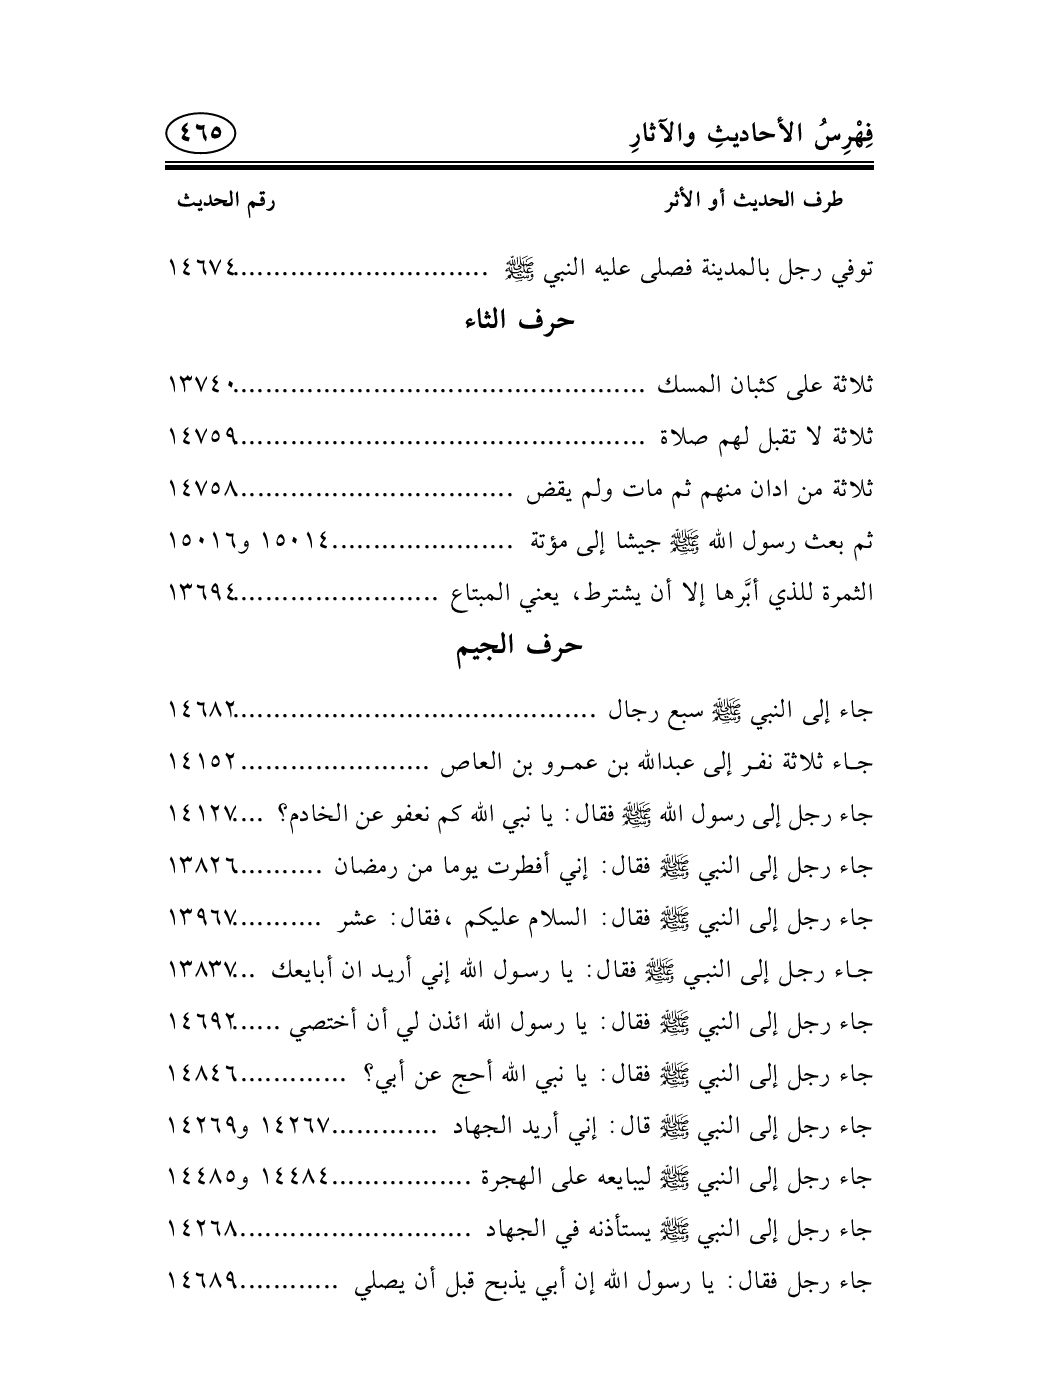 فِهْرِسُ الأحاديثِ والآثارِ ٤٦٥
طرف الحديث أو الأثر رقم الحديث
توفي رجل بالمدينة فصلى عليه النبي ﷺ ..............................١٤٦٧٤
حرف الثاء
ثلاثة على كثبان المسك ..................................................١٣٧٤٠
ثلاثة لا تقبل لهم صلاة .................................................١٤٧٥٩
ثلاثة من ادان منهم ثم مات ولم يقض .................................١٤٧٥٨
ثم بعث رسول الله ﷺ جيشا إلى مؤتة ......................١٥٠١٤ و١٥٠١٦
الثمرة للذي أبَّرها إلا أن يشترط، يعني المبتاع .........................١٣٦٩٤
حرف الجيم
جاء إلى النبي ﷺ سبع رجال ............................................١٤٦٨٢
جاء ثلاثة نفر إلى عبدالله بن عمرو بن العاص .......................١٤١٥٢
جاء رجل إلى رسول الله ﷺ فقال: يا نبي الله كم نعفو عن الخادم؟ ....١٤١٢٧
جاء رجل إلى النبي ﷺ فقال: إني أفطرت يوما من رمضان ..........١٣٨٢٦
جاء رجل إلى النبي ﷺ فقال: السلام عليكم ،فقال: عشر ...........١٣٩٦٧
جاء رجل إلى النبي ﷺ فقال: يا رسول الله إني أريد ان أبايعك ...١٣٨٣٧
جاء رجل إلى النبي ﷺ فقال: يا رسول الله ائذن لي أن أختصي ......١٤٦٩٢
جاء رجل إلى النبي ﷺ فقال: يا نبي الله أحج عن أبي؟ .............١٤٨٤٦
جاء رجل إلى النبي ﷺ قال: إني أريد الجهاد .............١٤٢٦٧ و١٤٢٦٩
جاء رجل إلى النبي ﷺ ليبايعه على الهجرة .................١٤٤٨٤ و١٤٤٨٥
جاء رجل إلى النبي ﷺ يستأذنه في الجهاد ............................١٤٢٦٨
جاء رجل فقال: يا رسول الله إن أبي يذبح قبل أن يصلي ............١٤٦٨٩